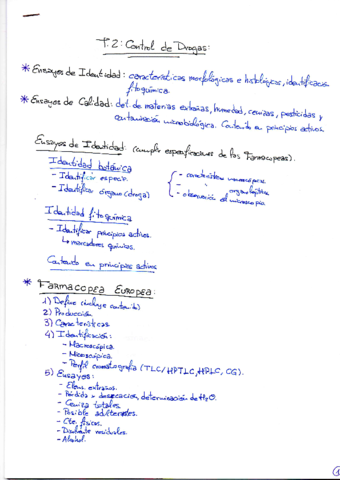 T.2: Control de Drogas:
* Ensayos de Identidad: características morfológicas e histológicas, identificación
fitoquímica.
* Ensayos de Calidad: det. de materias extrañas, humedad, cenizas, pesticidas y
contaminación microbiológica. Contenido en principios activos.
Ensayos de Identidad: (cumplir especificaciones de las Farmacopeas).
Identidad botánica
- Identificar especie.
- Identificar órgano (droga)
- características macroscópicas
- " organolépticas
- observación al microscopio
Identidad fitoquímica
- Identificar principios activos.
↳ marcadores químicos.
Contenido en principios activos
* FARMACOPEA EUROPEA:
1) Define (incluye contenido)
2) Producción
3) Características
4) Identificación:
- Macroscópica
- Microscópica
- Perfil cromatografía (TLC/HPTLC, HPLC, CG).
5) Ensayos:
- Elem. extraños.
- Pérdida x desecación, determinación de H2O.
- Ceniza totales.
- Posible adulterantes.
- Cte. físicas.
- Disolvente residuales.
- Alcohol.
1